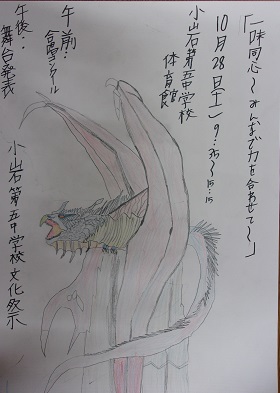 「一味同心～みんなで力を合わせて～」
10月28日(土) 9:35～15:15
小山石第五中学校
体育館
午前:
合唱コンクール
午後:
舞台発表
小山石第五中学校文化祭